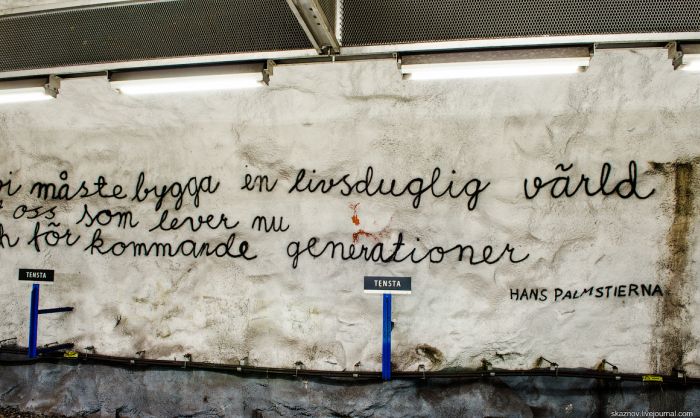 vi måste bygga en livsduglig värld
åt oss som lever nu
h för kommande generationer
HANS PALMSTIERNA
TENSTA
TENSTA
skaznov.livejournal.com